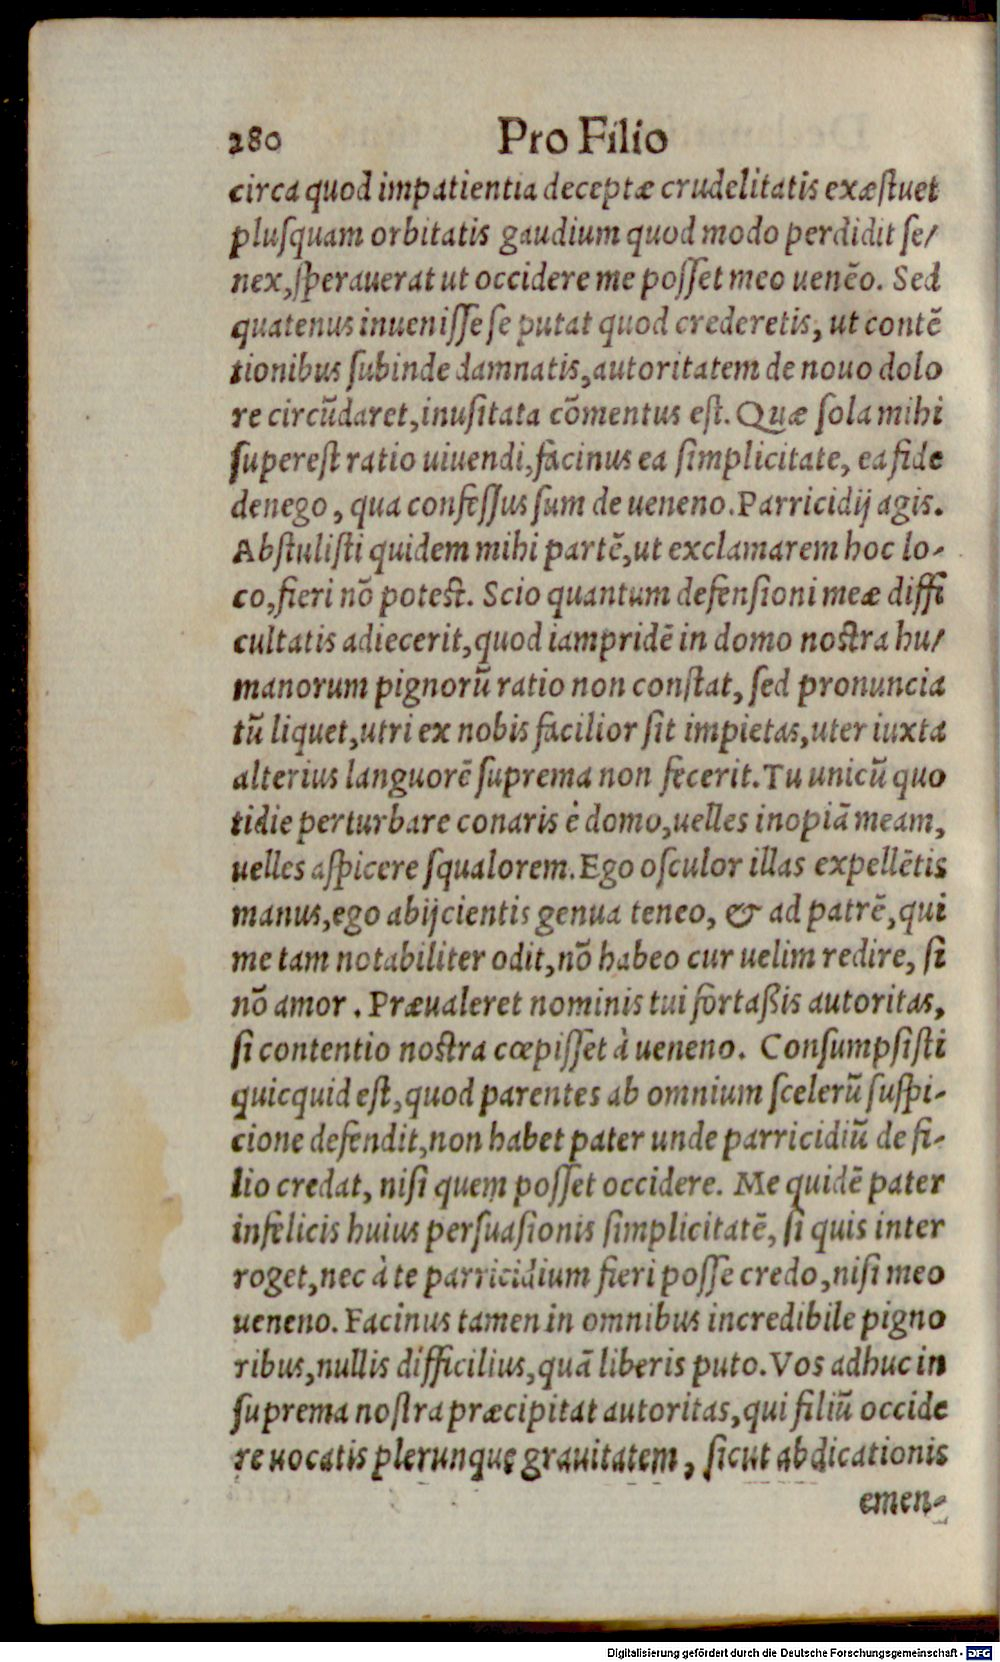 280 Pro Filio
circa quod impatientia deceptæ crudelitatis exæſtuet
pluſquam orbitatis gaudium quod modo perdidit ſe/
nex,ſperauerat ut occidere me poſſet meo uenēo. Sed
quatenus inueniſſe ſe putat quod crederetis, ut contē
tionibus ſubinde damnatis,autoritatem de nouo dolo
re circūdaret,inuſitata cōmentus eſt. Quæ ſola mihi
ſupereſt ratio uiuendi,facinus ea ſimplicitate, ea fide
denego, qua confeſſus ſum de ueneno.Parricidij agis.
Abſtuliſti quidem mihi partē,ut exclamarem hoc lo-
co,fieri nō poteſt. Scio quantum defenſioni meæ diffi
cultatis adiecerit,quod iampridē in domo noſtra hu/
manorum pignorū ratio non conſtat, ſed pronuncia
tū liquet,utri ex nobis facilior ſit impietas,uter iuxta
alterius languorē ſuprema non fecerit.Tu unicū quo
tidie perturbare conaris è domo,uelles inopiā meam,
uelles aſpicere ſqualorem.Ego oſculor illas expellētis
manus,ego abijcientis genua teneo, & ad patrē,qui
me tam notabiliter odit,nō habeo cur uelim redire, ſi
nō amor. Præualeret nominis tui fortaßis autoritas,
ſi contentio noſtra cœpiſſet à ueneno. Conſumpſiſti
quicquid eſt,quod parentes ab omnium ſcelerū ſuſpi-
cione defendit,non habet pater unde parricidiū de fi-
lio credat, niſi quem poſſet occidere. Me quidē pater
infelicis huius perſuaſionis ſimplicitatē, ſi quis inter
roget,nec à te parricidium fieri poſſe credo,niſi meo
ueneno. Facinus tamen in omnibus incredibile pigno
ribus,nullis difficilius,quā liberis puto.Vos adhuc in
ſuprema noſtra præcipitat autoritas,qui filiū occide
re uocatis plerunque grauitatem, ſicut abdicationis
emen-
Digitalisierung gefördert durch die Deutsche Forschungsgemeinschaft - DFG